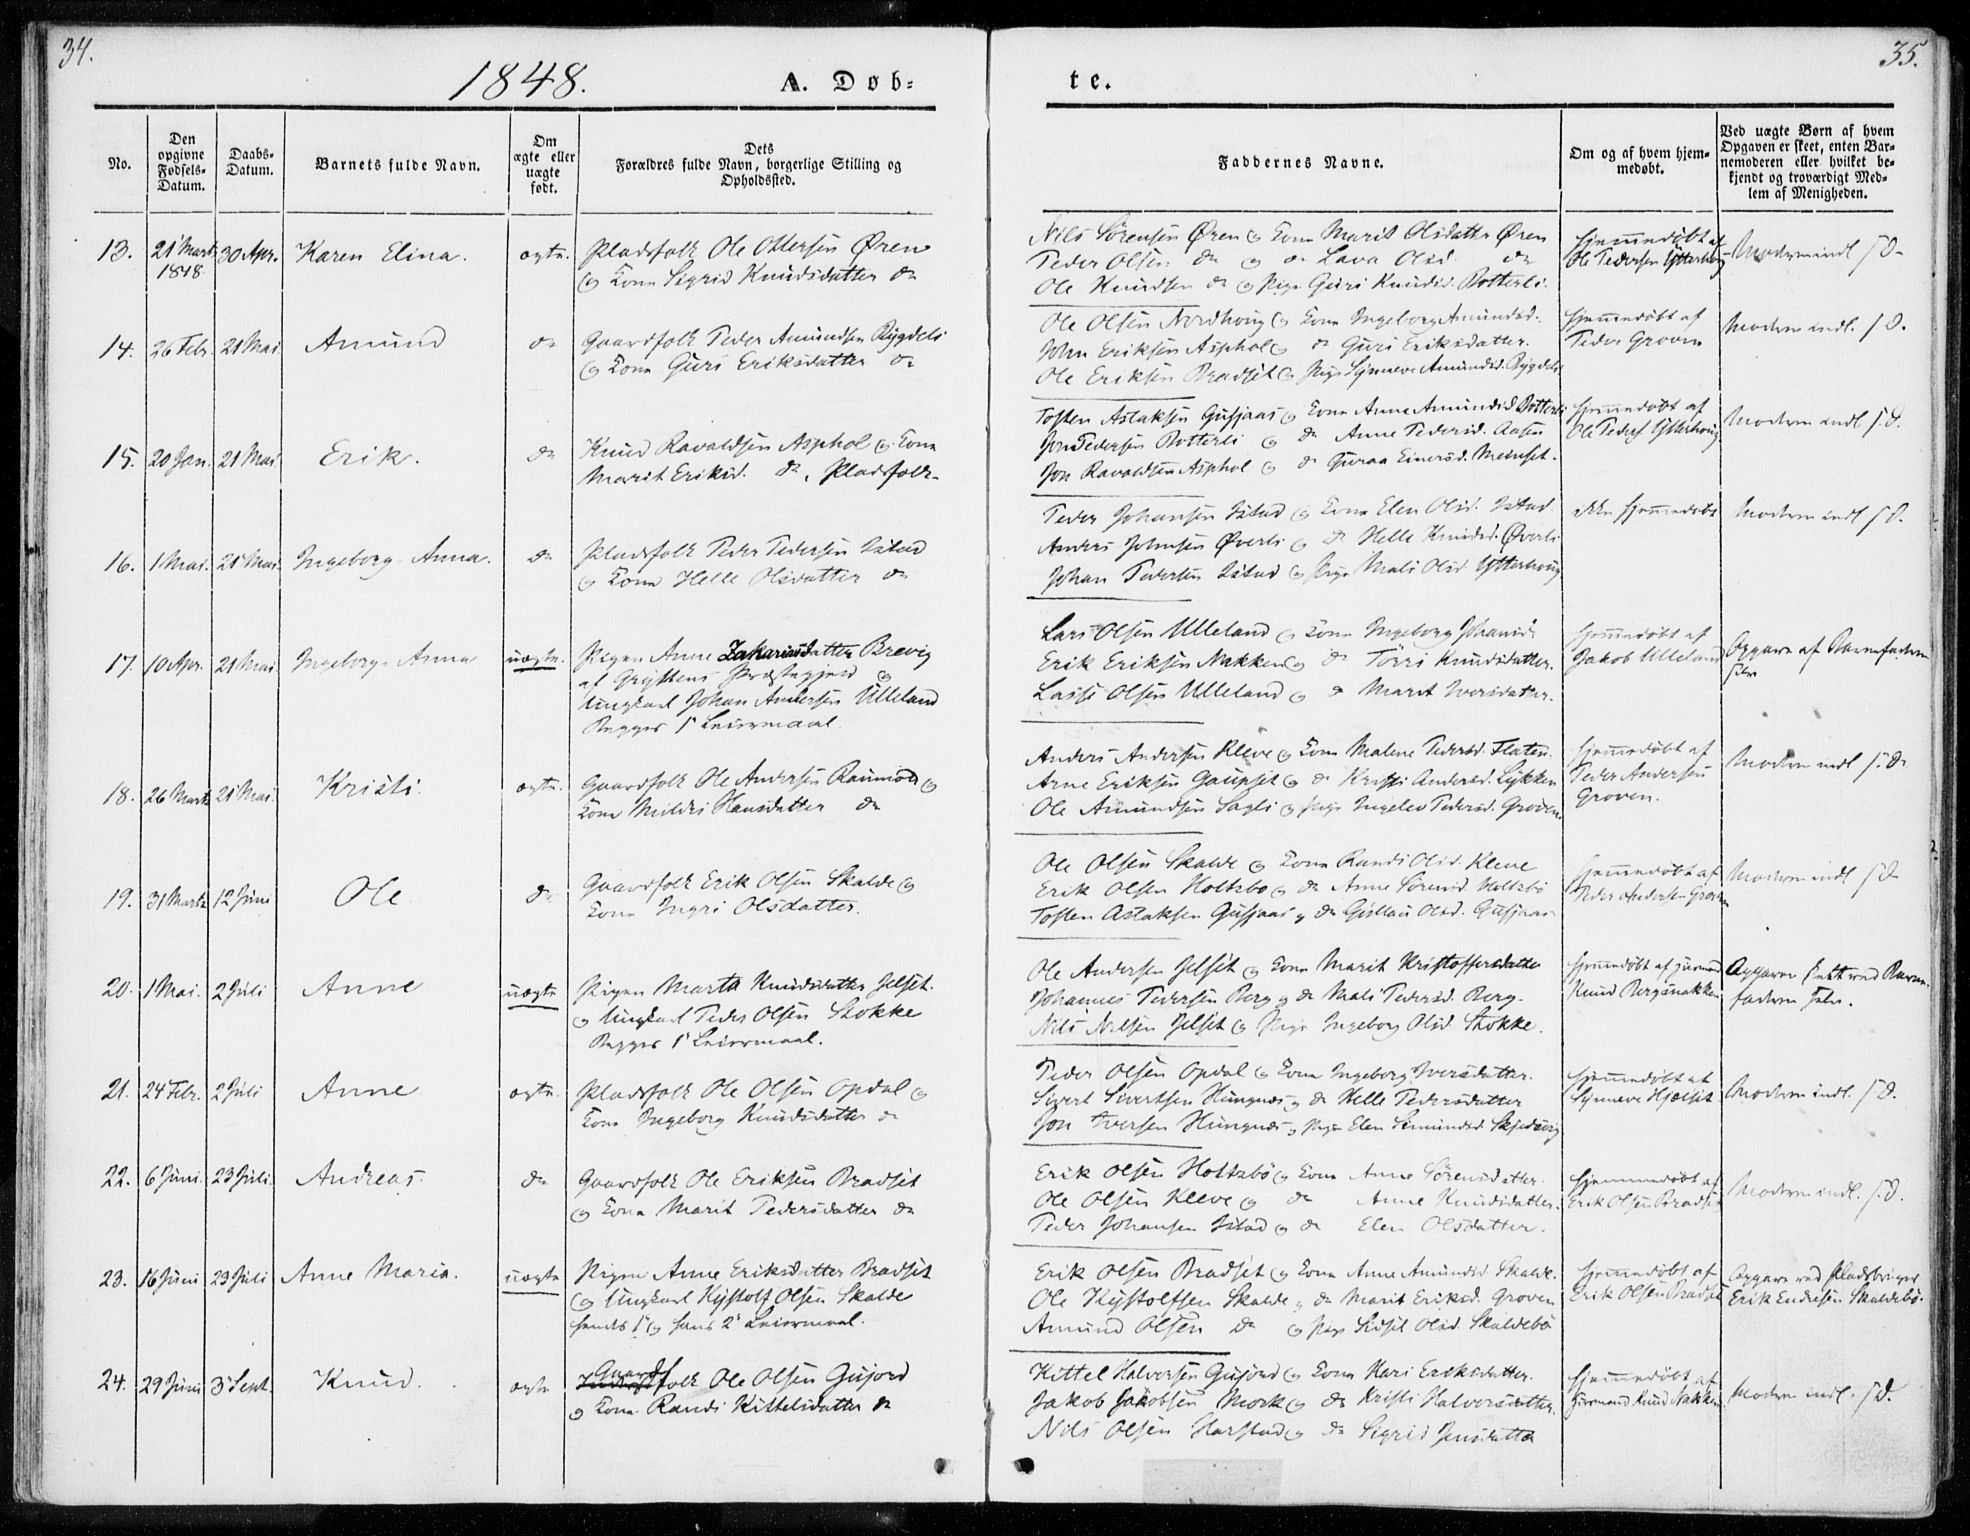 34.
35.
1848.
A. Døb-
te.
No.
Den
opgivne
Fødsels-
Datum.
Daabs-
Datum.
Barnets fulde Navn.
Om
ægte eller
uægte
født.
Dets
Forældres fulde Navn, borgerlige Stilling og
Opholdssted.
Faddernes Navne.
Om og af hvem hjem-
medøbt.
Ved uægte Børn af hvem
Opgaven er skeet, enten Bar-
nemoderen eller hvilket be-
kjendt og troværdigt Med-
lem af Menigheden.
13.
21 Marts
1848
30 Apr.
Karen Elina.
ægte.
Pladsfolk Ole Ottersen Øren
og Kone Sigrid Knudsdatter do
Nils Sørensen Øren og Kone Marit Olsdatter Øren
Peder Olsen do og do Lava Olsd. do
Ole Knudsen do og Pige Guri Knudsd. Botterli.
Hjemmedøbt af
Ole Pedersen Ytterhoug
Moderen indl. S.D.
14.
26 Febr.
21 Mai.
Amund
do
Gaardfolk Peder Amundsen Bygdeli
og Kone Guri Eriksdatter do
Ole Olsen Nordhoug og Kone Ingeborg Amundsd.
John Eriksen Asphol og do Guri Eriksdatter.
Ole Eriksen Bradset og Pige Synneve Amundsd. Bygdeli
Hjemmedøbt af
Peder Groven
Moderen indl. S.D.
15.
20 Jan.
21 Mai
Erik.
do
Knud Ravaldsen Asphol og Kone
Marit Eriksd. do, Pladsfolk
Tosten Aslaksen Gusjaas og Kone Anne Amundsd. Botterli
Jon Pedersen Botterli og do Anne Pedersd. Aasen
Jon Ravaldsen Asphol og do Guraa Einersd. Meinset.
Hjemmedøbt af
Ole Peders. Ytterhoug
Moderen indl. S.D.
16.
1 Mai.
21 Mai.
Ingeborg Anna.
do
Pladsfolk Peder Pedersen Istad
og Kone Helle Olsdatter do
Peder Johansen Istad og Kone Elen Olsd. Istad.
Anders Johnsen Øverli og do Helle Knudsd. Øverli
Johan Pedersen Istad og Pige Mali Olsd. Ytterhoug
ikke hjemmedøbt
Moderen indl S.D.
17.
10 Apr.
21 Mai
Ingeborg Anna
uægte.
Pigen Anne Zakariasdatter Brevig
af Gryttens Præstegjeld og
Ungkarl Johan Andersen Ulleland
Begges 1ste Leiermaal
Lars Olsen Ulleland og Kone Ingeborg Johansd.
Erik Eriksen Nakken og do Torri Knudsdatter.
Lasse Olsen Ulleland og do Marit Iversdatter.
Hjemmedøbt af
Jakob Ulleland
Opgave af Barnefaderen
selv
18.
26 Marts
21 Mai.
Kristi
ægte.
Gaardfolk Ole Andersen Raumo og
Kone Mildri Hansdatter do
Anders Andersen Kleve og Kone Malene Pedersd. Flaten.
Arne Eriksen Gaupset og do Kristi Andersd. Lykken
Ole Amundsen Sagli og Pige Ingelev Pedersd. Groven
Hjemmedøbt af
Peder Andersen
Groven.
Moderen indl. S.D.
19.
31 Marts
12 Juni
Ole
do
Gaardfolk Erik Olsen Skalde og
Kone Ingri Olsdatter.
Ole Olsen Skalde og Kone Randi Olsd. Kleve
Erik Olsen Holtsbø og do Anne Sørensd. Holtsbø
Tosten Aslaksen Gusjaas og do Gjøllau Olsd. Gusjaas
Hjemmedøbt af
Peder Andersen Groven
Moderen indl S.D.
20.
1 Mai.
2 Juli
Anne
uægte
Pigen Marta Knudsdatter Jelset.
og Ungkarl Peder Olsen Stokke
Begges 1ste Leiermaal.
Ole Andersen Jelset og Kone Marit Kristoffersdatter
Johannes Pedersen Berg og do Mali Pedersd. Berg.
Nils Nilsen Jelset og Pige Ingeborg Olsd. Stokke.
Hjemmedøbt af Gjørmand
Knud Bergsnakken
Opgaven skeet ved Barne-
faderen selv.
21.
24 Febr.
2 Juli
Anne
ægte.
Pladsfolk Ole Olsen Opdal og
Kone Ingeborg Knudsdatter do
Peder Olsen Opdal og Kone Ingeborg Iversdatter.
Sivert Sivertsen Hungnes og do Helle Pedersdatter
Jon Iversen Hungnes og Pige Elen Simundsd. Skjedsvig
Hjemmedøbt af
Synneve Hjelset
Moderen indl. S.D.
22.
6 Juni.
23 Juli.
Andreas.
do
Gaardfolk Ole Eriksen Bradset
og Kone Marit Pedersdatter do
Erik Olsen Holtsbø og Kone Anne Sørensdatter.
Ole Olsen Kleve og do Anne Knudsdatter.
Peder Johansen Istad og do Elen Olsdatter.
Hjemmedøbt af
Erik Olsen Bradset
Moderen indl. S.D.
23.
16 Juni
23 Juli
Anne Maria.
uægte
Pigen Anne Eriksdatter Bradset
og Ungkarl Kjøstolf Olsen Skalde
hendes 1ste og hans 2det Leiermaal.
Erik Olsen Bradset og Kone Anne Amundsd. Skalde.
Ole Kjøstolfsen Skalde og do Marit Eriksd. Groven
Amund Olsen do og Pige Sidsil Olsd. Skaldebø
Hjemmedøbt af
Erik Olsen Bradset
Opgave ved Pladsbruger
Erik Endresen Skaldebø.
24.
29 Juni
3 Sept.
Knud.
ægte
Gaardfolk Ole Olsen Gujord
og Kone Randi Kittelsdatter do
Kittel Halvorsen Gujord og Kone Kari Eriksdatter.
Jakob Jakobsen Mork og do Kristi Halvorsdatter.
Nils Olsen Harstad og do Sigrid Jensdatter
Hjemmedøbt af
Gjørmand Knud Nakken
Moderen indl. S.D.